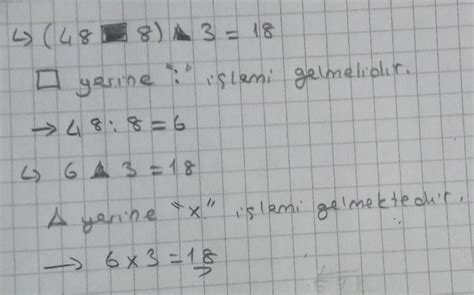 ↳ (48 ■ 8) ▲ 3 = 18
□ yerine ":" işlemi gelmelidir.
→ 48 : 8 = 6
↳ 6 ▲ 3 = 18
△ yerine "x" işlemi gelmektedir.
→ 6 x 3 = 18